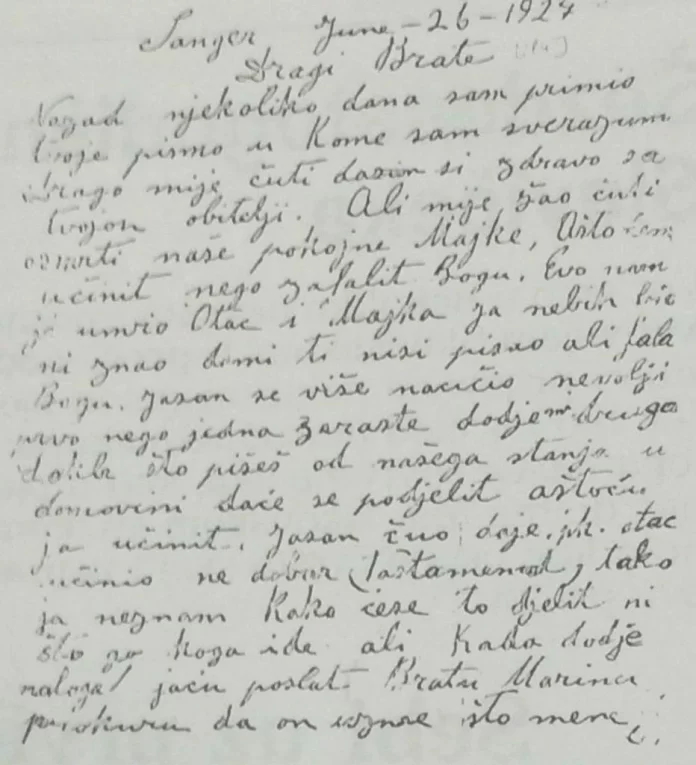 Sanger June - 26 - 1927
Dragi Brate
Nazad njekoliko dana sam primio
tvoje pismo u kome sam sverazum
drago mije čuti dasin si zdravo sa
tvojon obitelji. Ali mije žao čuti
osmrti naše pokojne Majke, Ašto ćem
učinit nego zafalit Bogu. Evo nam
je umro Otac i Majka ja nebih bio
ni znao dami ti nisi pisao ali fala
Bogu. jasan se više naučio nevolji
prvo nego jedna zaraste dodje mi druga
dakle što pišeš od našega stanja u
domovini daće se podjelit aštoću
ja učinit. jasan čuo daje. pk. otac
učinio ne dobar Taštamenat, tako
ja neznam kako ćese to djelit ni
što za koga ide ali kada dodje
naloga jaću poslat Bratu Marinu
prokuru da on uzme što mene